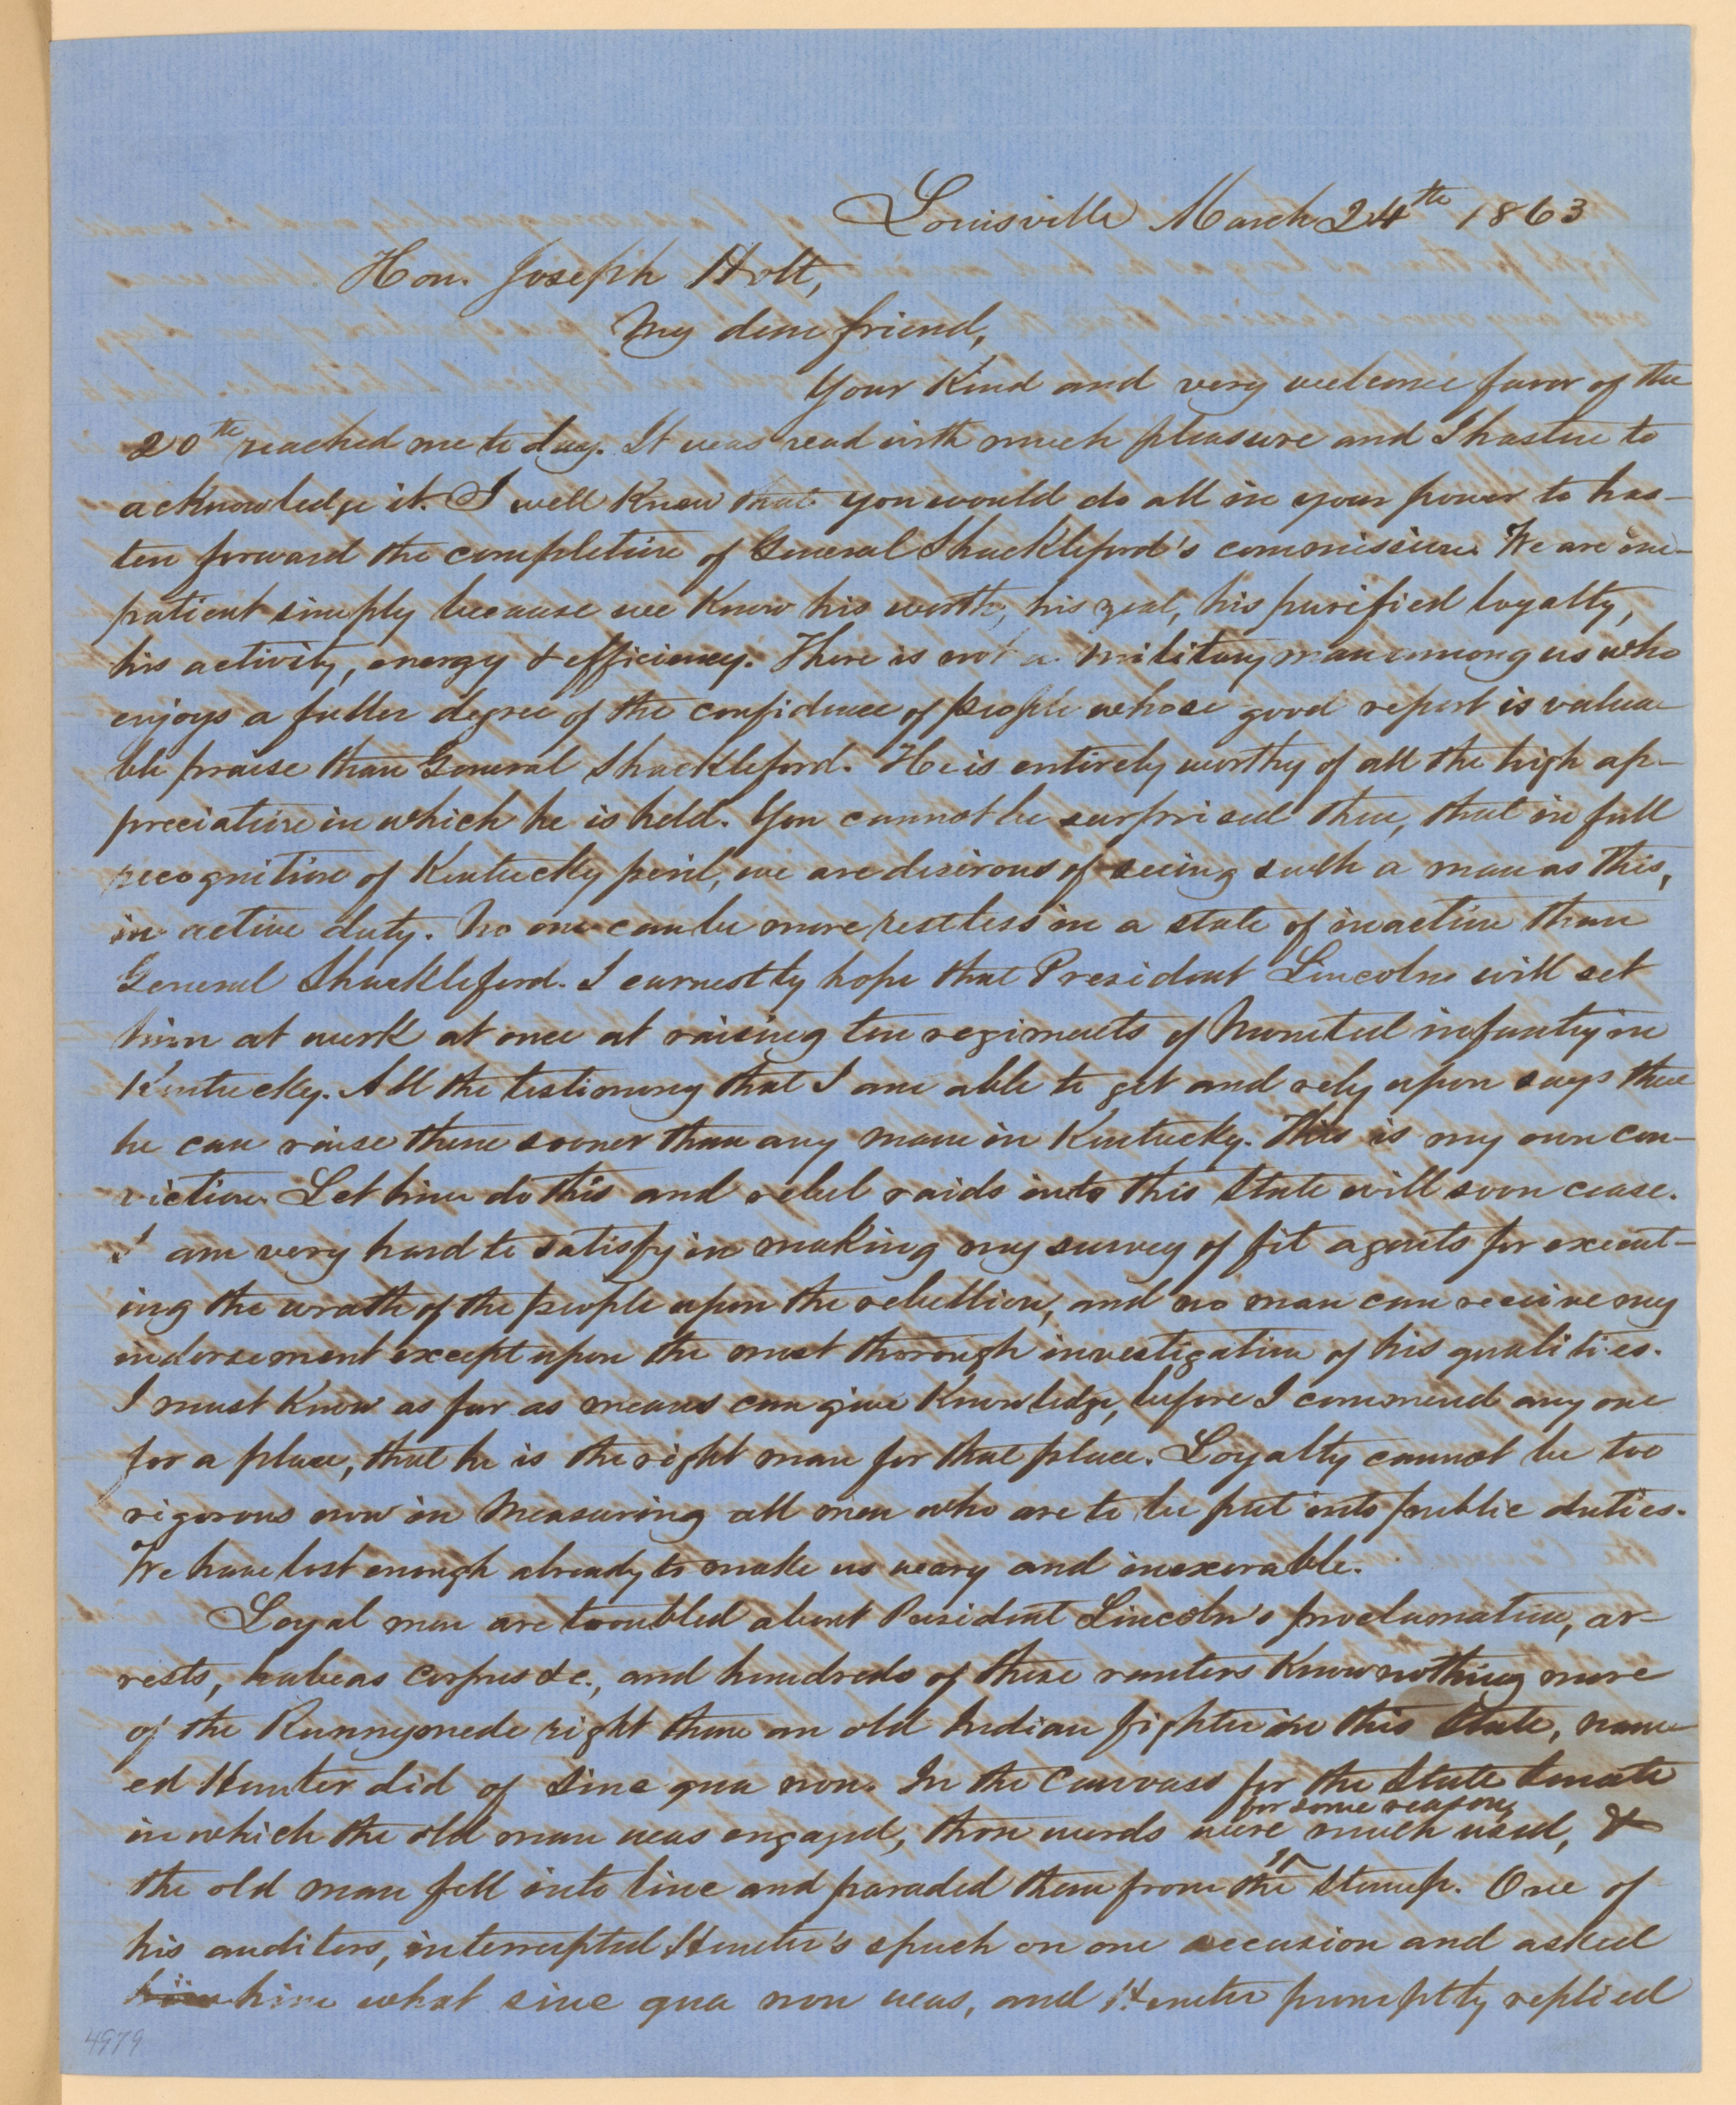 Louisville March 24th 1863
Hon. Joseph Holt,
My dear friend,
Your kind and very welcome favor of the
20th reached me to day. It was read with much pleasure and I hasten to
acknowledge it. I well knew that you would do all in your power to has-
ten forward the completion of General Shackleford's commission. We are im-
patient simply because we know his worth, his zeal, his purified loyalty,
his activity, energy & efficiency. There is not a military man among us who
enjoys a fuller degree of the confidence of people whose good report is valua-
ble praise than General Shackleford. He is entirely worthy of all the high ap-
preciation in which he is held. You cannot be surprised then, that in full
recognition of Kentucky peril, we are desirous of seeing such a man as this,
in active duty. No one can be more restless in a state of inaction than
General Shackleford. I earnestly hope that President Lincoln will set
him at work at once at raising ten regiments of Mounted infantry in
Kentucky. All the testimony that I am able to get and rely upon says that
he can raise them sooner than any man in Kentucky. This is my own con-
viction. Let him do this and rebel raids into this State will soon cease.
I am very hard to satisfy in making my survey of fit agents for execut-
ing the wrath of the people upon the rebellion, and no man can receive my
indorsement except upon the most thorough investigation of his qualities.
I must know as far as means can give knowledge, before I commend any one
for a place, that he is the right man for that place. Loyalty cannot be too
rigorous now in measuring all men who are to be put into public duties.
We have lost enough already to make us weary and inexorable.
Loyal men are troubled about President Lincoln's proclamation, ar-
rests, habeas corpus &c., and hundreds of these ranters know nothing more
of the Runnymede right than an old Indian fighter in this State, nam-
ed Hunter did of sine qua non. In the Canvass for the State Senate
for some reason,
in which the old man was engaged, those words were much used, &
the old man fell into line and paraded them from the stump. One of
his auditors, interrupted Hunter's speech on one occasion and asked
him him what sine qua non was, and Hunter promptly replied
4979